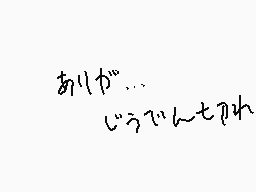 ありが...
じうでんせつれ